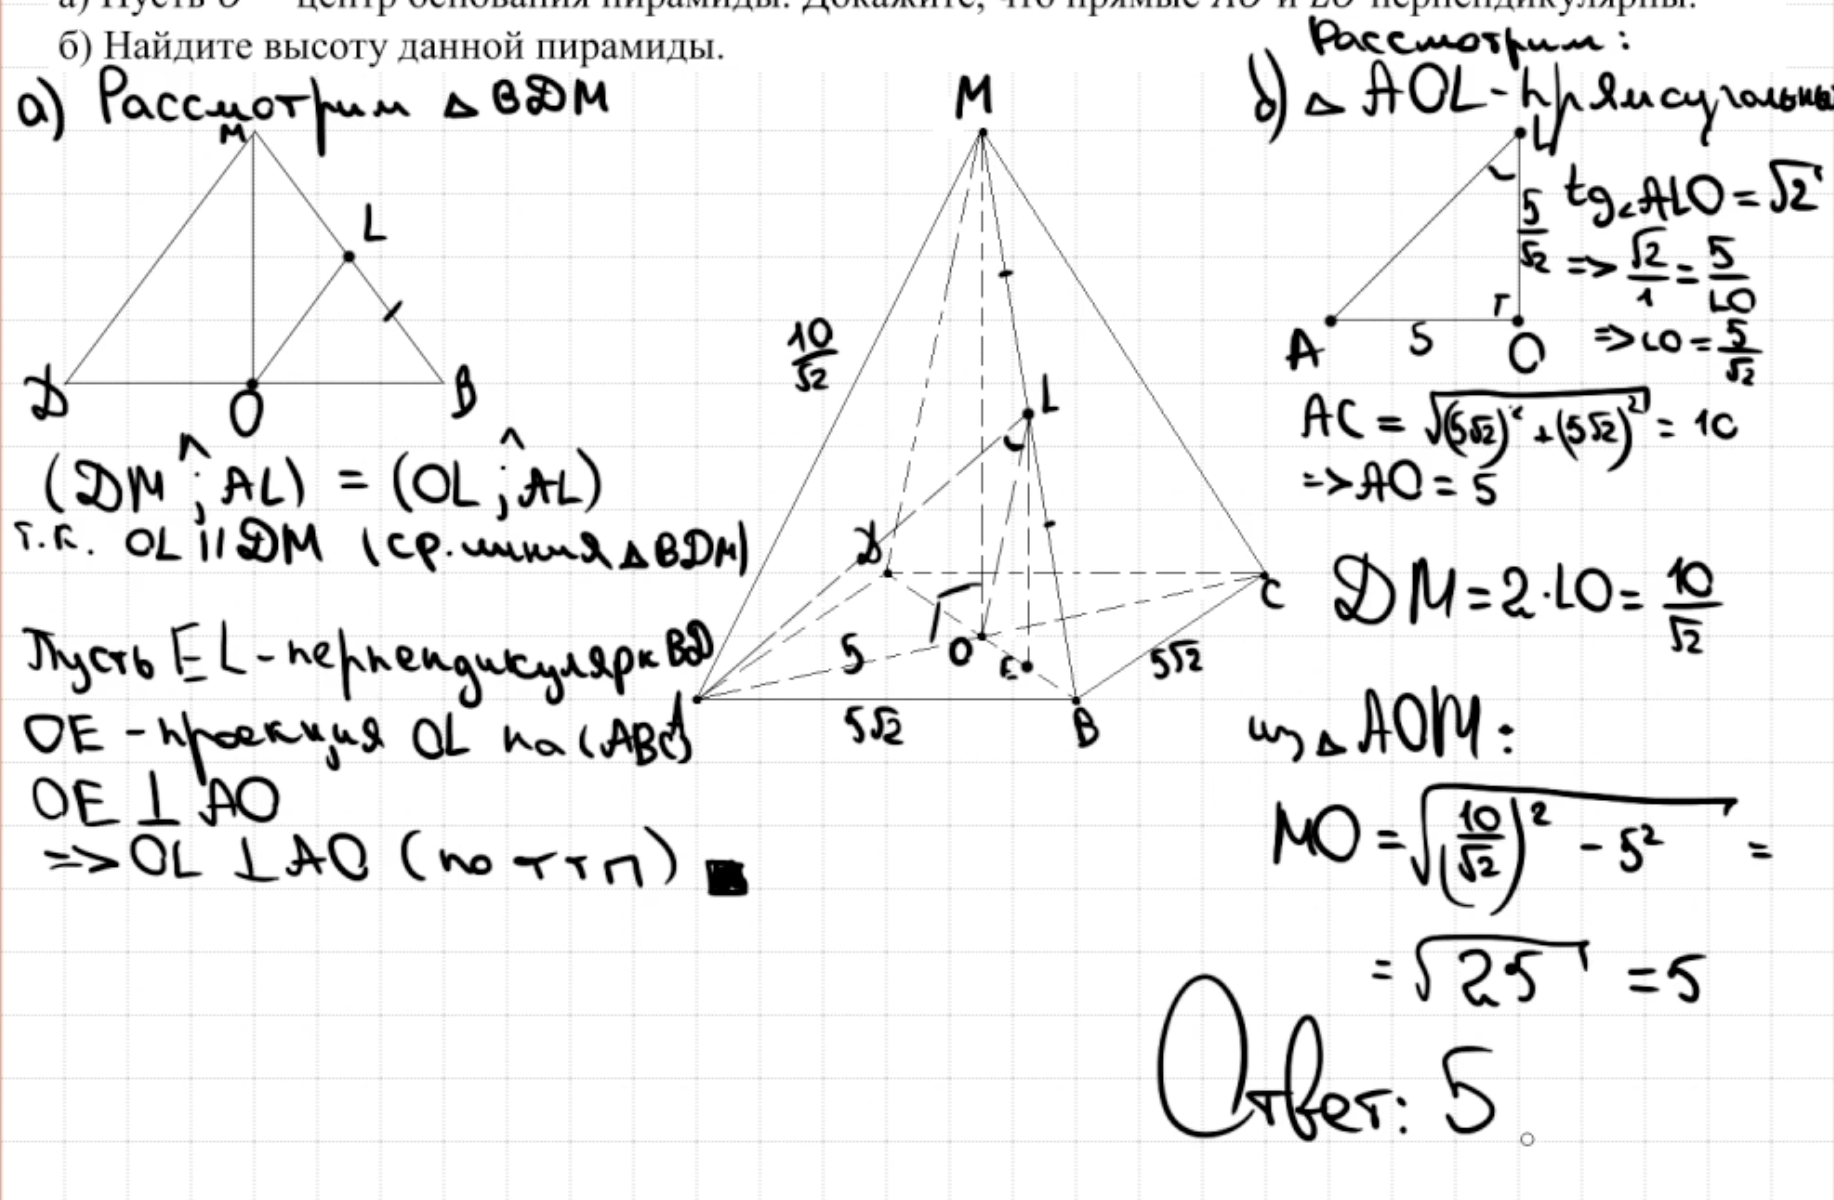 а) Пусть O — центр основания пирамиды. Докажите, что прямые AO и LO перпендикулярны.
б) Найдите высоту данной пирамиды.
а) Рассмотрим △ BDM
M
L
D
O
B
(DM ^; AL) = (OL ^; AL)
т.к. OL || DM (ср. линия △ BDM)
Пусть EL - перпендикуляр к BD
OE - проекция OL на (ABC)
OE ⊥ AO
=> OL ⊥ AO (по ттп) ■
M
10/√2
L
D
5
O
E
C
5√2
A
5√2
B
Рассмотрим:
б) △ AOL - прямоугольный
L
5/√2
A
5
O
tg∠ALO = √2
=> √2/1 = 5/LO
=> LO = 5/√2
AC = √((5√2)² + (5√2)²) = 10
=> AO = 5
DM = 2·LO = 10/√2
из △ AOM:
MO = √((10/√2)² - 5²) =
= √25 = 5
Ответ: 5